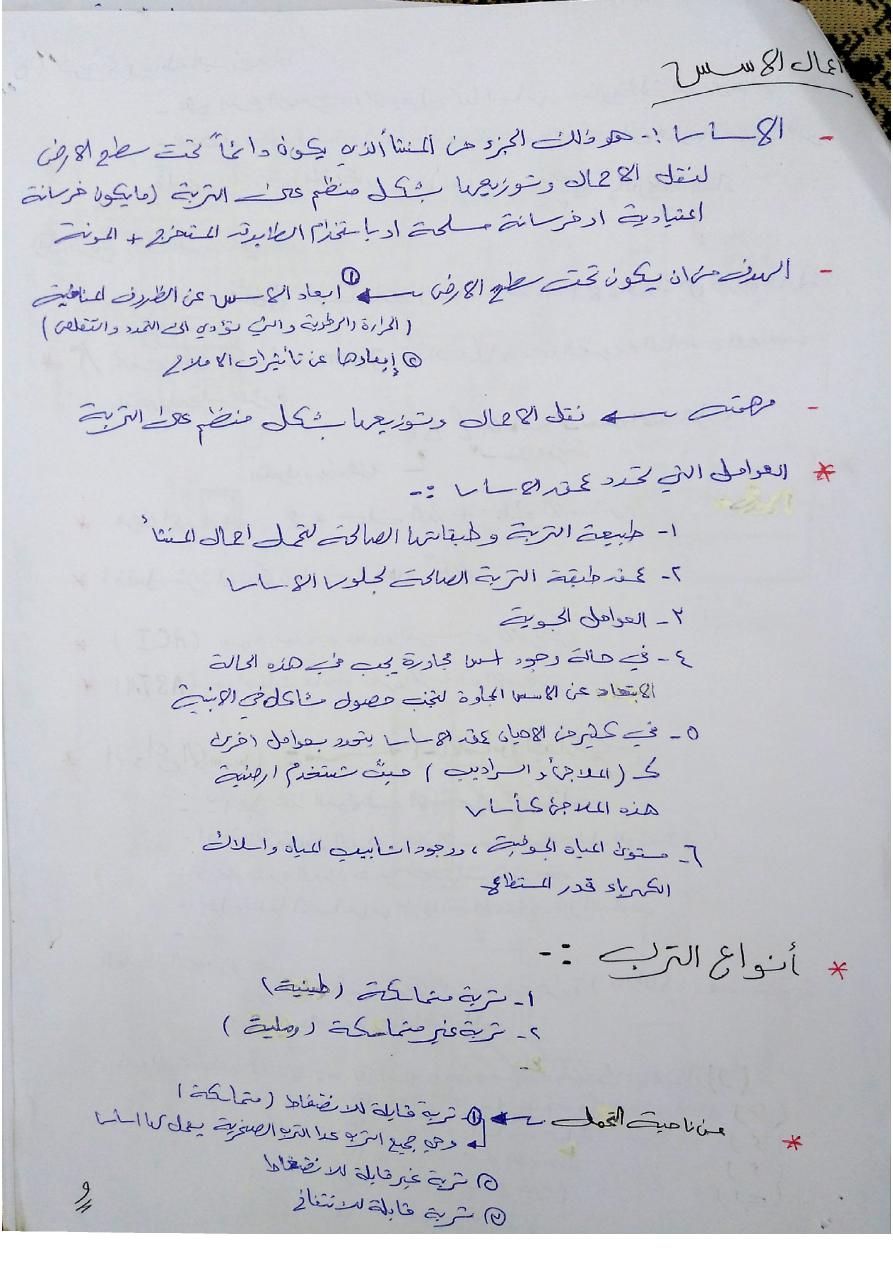 اعمال الاسس
- الاساس :- هو ذلك الجزء من المنشأ الذي يكون دائماً تحت سطح الارض
لنقل الاحمال وتوزيعها بشكل منظم على التربة (ما يكون خرسانة
اعتيادية او خرسانة مسلحة او باستخدام الطابوق المستخرج + المونة
- الهدف من ان يكون تحت سطح الارض ← ① ابعاد الاسس عن الظروف المناخية
(الحرارة والرطوبة والتي تؤدي الى التمدد والتقلص)
② إبعادها عن تأثيرات الاملاح
- مهمته ← نقل الاحمال وتوزيعها بشكل منظم على التربة
* العوامل التي تحدد عمق الاساس :-
١- طبيعة التربة وطبقاتها الصالحة لتحمل احمال المنشأ
٢- عمق طبقة التربة الصالحة لجلوس الاساس
٣- العوامل الجوية
٤- في حالة وجود اسس مجاورة يجب في هذه الحالة
الابتعاد عن الاسس المجاورة لتجنب حصول مشاكل في الابنية
٥- في كثير من الاحيان عمق الاساس يتحدد بعوامل اخرى
كـ (الملاجئ أو السراديب) حيث تستخدم ارضية
هذه الملاجئ كأساس
٦- مستوى المياه الجوفية ، ووجود انابيب المياه واسلاك
الكهرباء قدر المستطاع
* أنواع الترب :-
١- تربة متماسكة (طينية)
٢- تربة غير متماسكة (رملية)
-
* من ناحية التحمل ← ① تربة قابلة للانضغاط (متماسكة)
وهي جميع الترب عدا الترب الصخرية يعمل لها اساس
② تربة غير قابلة للانضغاط
③ تربة قابلة للانتفاخ